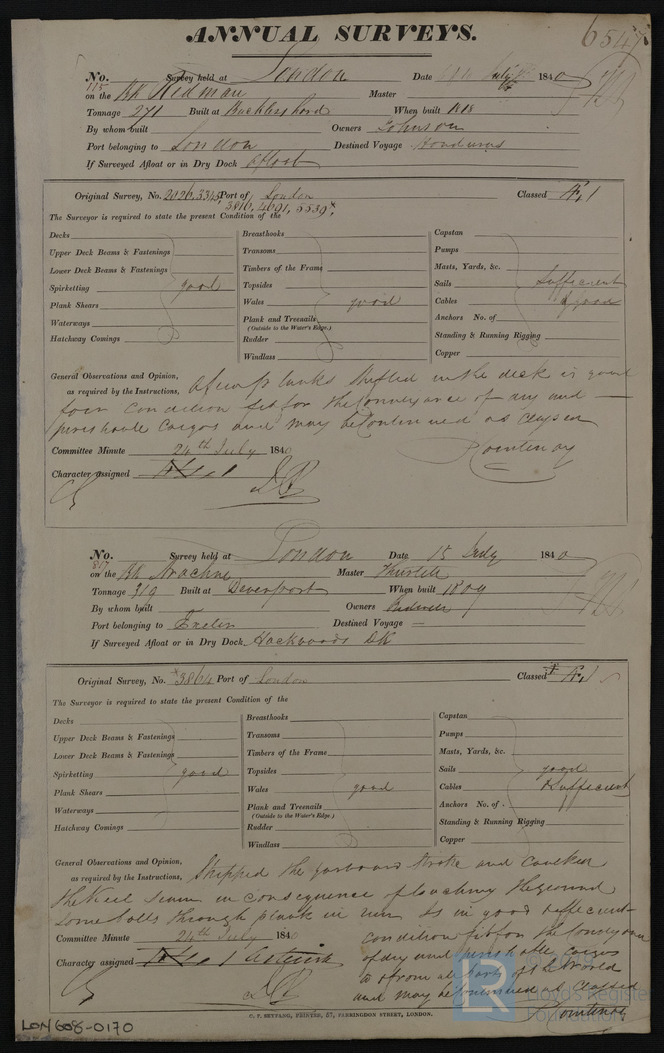 ANNUAL SURVEYS.
6547
No. Survey held at London Date July 1840
115
on the Bk Redman Master
Tonnage 271 Built at Bucklershard When built 1818
By whom built Owners Johnson
Port belonging to London Destined Voyage Honduras
If Surveyed Afloat or in Dry Dock Afloat
Original Survey, No. 2026, 3345, Port of London Classed Æ 1
3816, 4691, 5539*
The Surveyor is required to state the present Condition of the
Decks
Upper Deck Beams & Fastenings
Lower Deck Beams & Fastenings
Spirketting good
Plank Shears
Waterways
Hatchway Comings
Breasthooks
Transoms
Timbers of the Frame
Topsides
Wales good
Plank and Treenails
(Outside to the Water's Edge.)
Rudder
Windlass
Capstan
Pumps
Masts, Yards, &c.
Sails Sufficient
Cables & good
Anchors No. of
Standing & Running Rigging
Copper
General Observations and Opinion,
as required by the Instructions, A few planks shifted in the deck is in good
condition fit for the conveyance of dry and
perishable Cargos and may be continued as classed
Committee Minute 24th July 1840 Courtenay
Character assigned
No. Survey held at London Date 15 July 1840
817
on the Bk Arachne Master
Tonnage 319 Built at Devenport When built 1809
By whom built Owners
Port belonging to Exeter Destined Voyage —
If Surveyed Afloat or in Dry Dock Hackwoods DK
Original Survey, No. *3864 Port of London Classed * Æ 1
The Surveyor is required to state the present Condition of the
Decks
Upper Deck Beams & Fastenings
Lower Deck Beams & Fastenings
Spirketting good
Plank Shears
Waterways
Hatchway Comings
Breasthooks
Transoms
Timbers of the Frame
Topsides
Wales good
Plank and Treenails
(Outside to the Water's Edge.)
Rudder
Windlass
Capstan
Pumps
Masts, Yards, &c.
Sails good
Cables & sufficient
Anchors No. of
Standing & Running Rigging
Copper
General Observations and Opinion,
as required by the Instructions, Shipped the garboard stroke and caulked
the Keel seam in consequence of touching the ground
some bolts through plank in run is in good & efficient
Committee Minute 24th July 1840 condition fit for the Conveyance
Character assigned of dry and perishable Cargos
to & from all parts of the World
and may be continued as Classed
Courtenay
C. F. SEYFANG, PRINTER, 57, FARRINGDON STREET, LONDON.
LON608-0170
LR
Lloyd's Register
Foundation